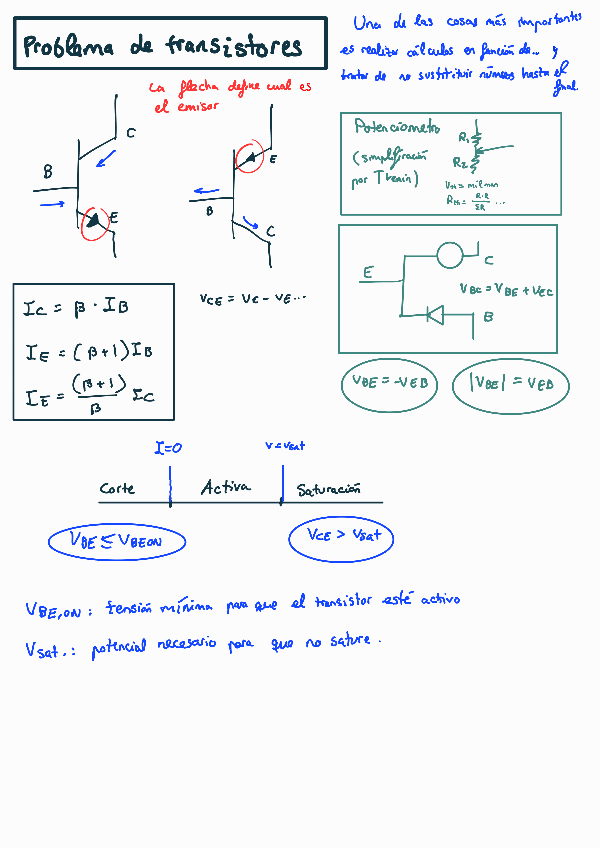 Problema de transistores
Una de las cosas más importantes
es realizar cálculos en función de... y
tratar de no sustituir números hasta el
final
La flecha define cual es
el emisor
C
B
E
E
B
C
Potenciometro
(simplificación
por Thevenin)
R1
R2
Vth = mil man
Rth = R·R / ΣR ...
E
C
VBC = VBE + VEC
B
VBE = -VEB
|VBE| = VEB
IC = β · IB
IE = (β+1) IB
IE = (β+1)/β IC
VCE = VC - VE ...
I=0
V=Vsat
Corte
Activa
Saturación
VBE ≤ VBEON
VCE > Vsat
VBE,ON : tensión mínima para que el transistor esté activo
Vsat. : potencial necesario para que no sature.